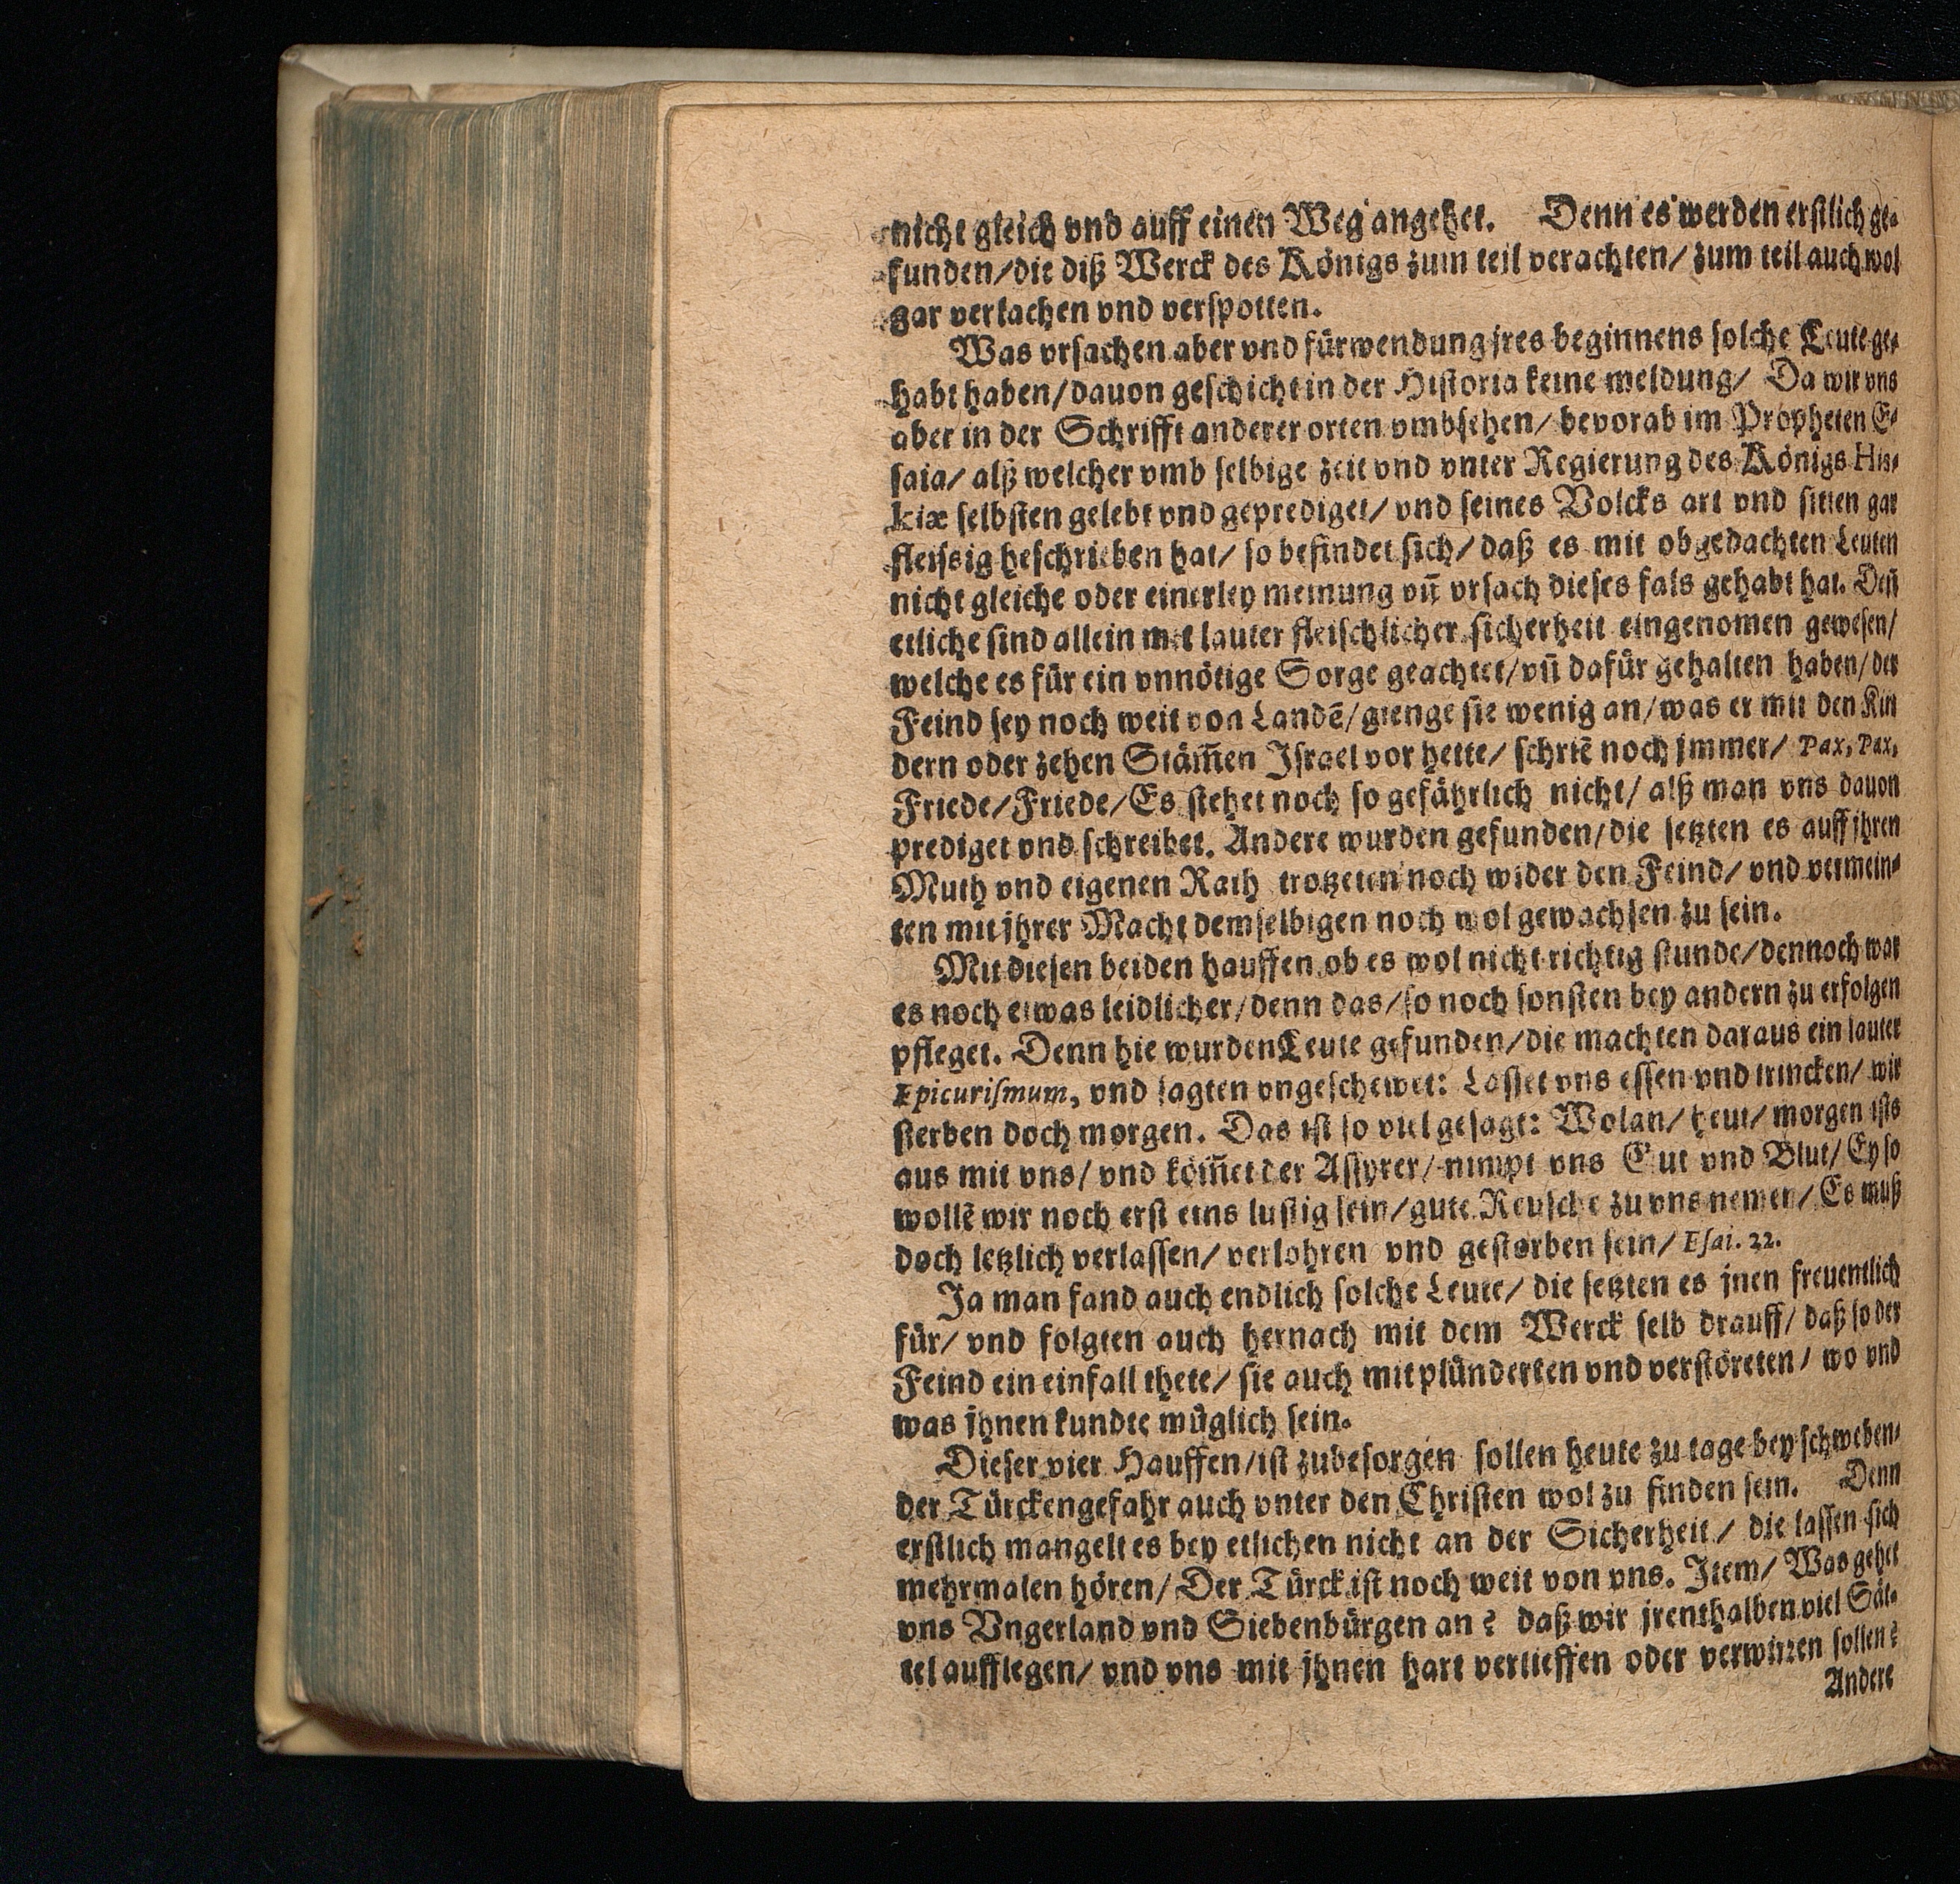 nicht gleich vnd auff einen Weg angehet. Denn es werden erstlich ge-
funden/die diß Werck des Königs zum teil verachten/ zum teil auch wol
gar verlachen vnd verspotten.
Was vrsachen aber vnd fürwendung jres beginnens solche Leute ge-
habt haben/dauon geschicht in der Historia keine meldung/ Da wir vns
aber in der Schrifft anderer orten vmbsehen/ bevorab im Propheten E-
saia/ alß welcher vmb selbige zeit vnd vnter Regierung des Königs His-
kiæ selbsten gelebt vnd geprediget/ vnd seines Volcks art vnd sitten gar
fleissig beschrieben hat/ so befindet sich/ daß es mit obgedachten Leuten
nicht gleiche oder einerley meinung vñ vrsach dieses fals gehabt hat. Deñ
etliche sind allein mit lauter fleischlicher sicherheit eingenomen gewesen/
welche es für ein vnnötige Sorge geachtet/vñ dafür gehalten haben/der
Feind sey noch weit von Landē/gienge sie wenig an/was er mit den Kin
dern oder zehen Stäm̃en Israel vor hette/ schriē noch jmmer/ Pax, Pax,
Friede/Friede/Es stehet noch so gefährlich nicht/ alß man vns dauon
prediget vnd schreibet. Andere wurden gefunden/die setzten es auff jhren
Muth vnd eigenen Rath trotzeten noch wider den Feind/ vnd vermein-
ten mit jhrer Macht demselbigen noch wol gewachsen zu sein.
Mit diesen beiden hauffen ob es wol nicht richtig stunde/dennoch war
es noch etwas leidlicher/denn das/so noch sonsten bey andern zu erfolgen
pfleget. Denn hie wurden Leute gefunden/die machten daraus ein lauter
Epicurismum, vnd sagten vngeschewet: Lasset vns essen vnd trincken/ wir
sterben doch morgen. Das ist so viel gesagt: Wolan/ heut/ morgen ists
aus mit vns/ vnd köm̃et der Assyrer/ nimpt vns Gut vnd Blut/ Ey so
wollē wir noch erst eins lustig sein/gute Reusche zu vns nemen/ Es muß
doch letzlich verlassen/ verlohren vnd gestorben sein/ Esai. 22.
Ja man fand auch endlich solche Leute/ die setzten es jnen freuentlich
für/ vnd folgten auch hernach mit dem Werck selb drauff/ daß so der
Feind ein einfall thete/ sie auch mit plünderten vnd verstöreten/ wo vnd
was jhnen kundte müglich sein.
Dieser vier Hauffen/ist zubesorgen sollen heute zu tage bey schweben-
der Türckengefahr auch vnter den Christen wol zu finden sein. Denn
erstlich mangelt es bey etlichen nicht an der Sicherheit/ die lassen sich
mehrmalen hören/ Der Türck ist noch weit von vns. Item/ Was gehet
vns Vngerland vnd Siebenbürgen an? daß wir jrenthalben viel Sät-
tel aufflegen/ vnd vns mit jhnen hart vertieffen oder verwirren sollen?
Andere